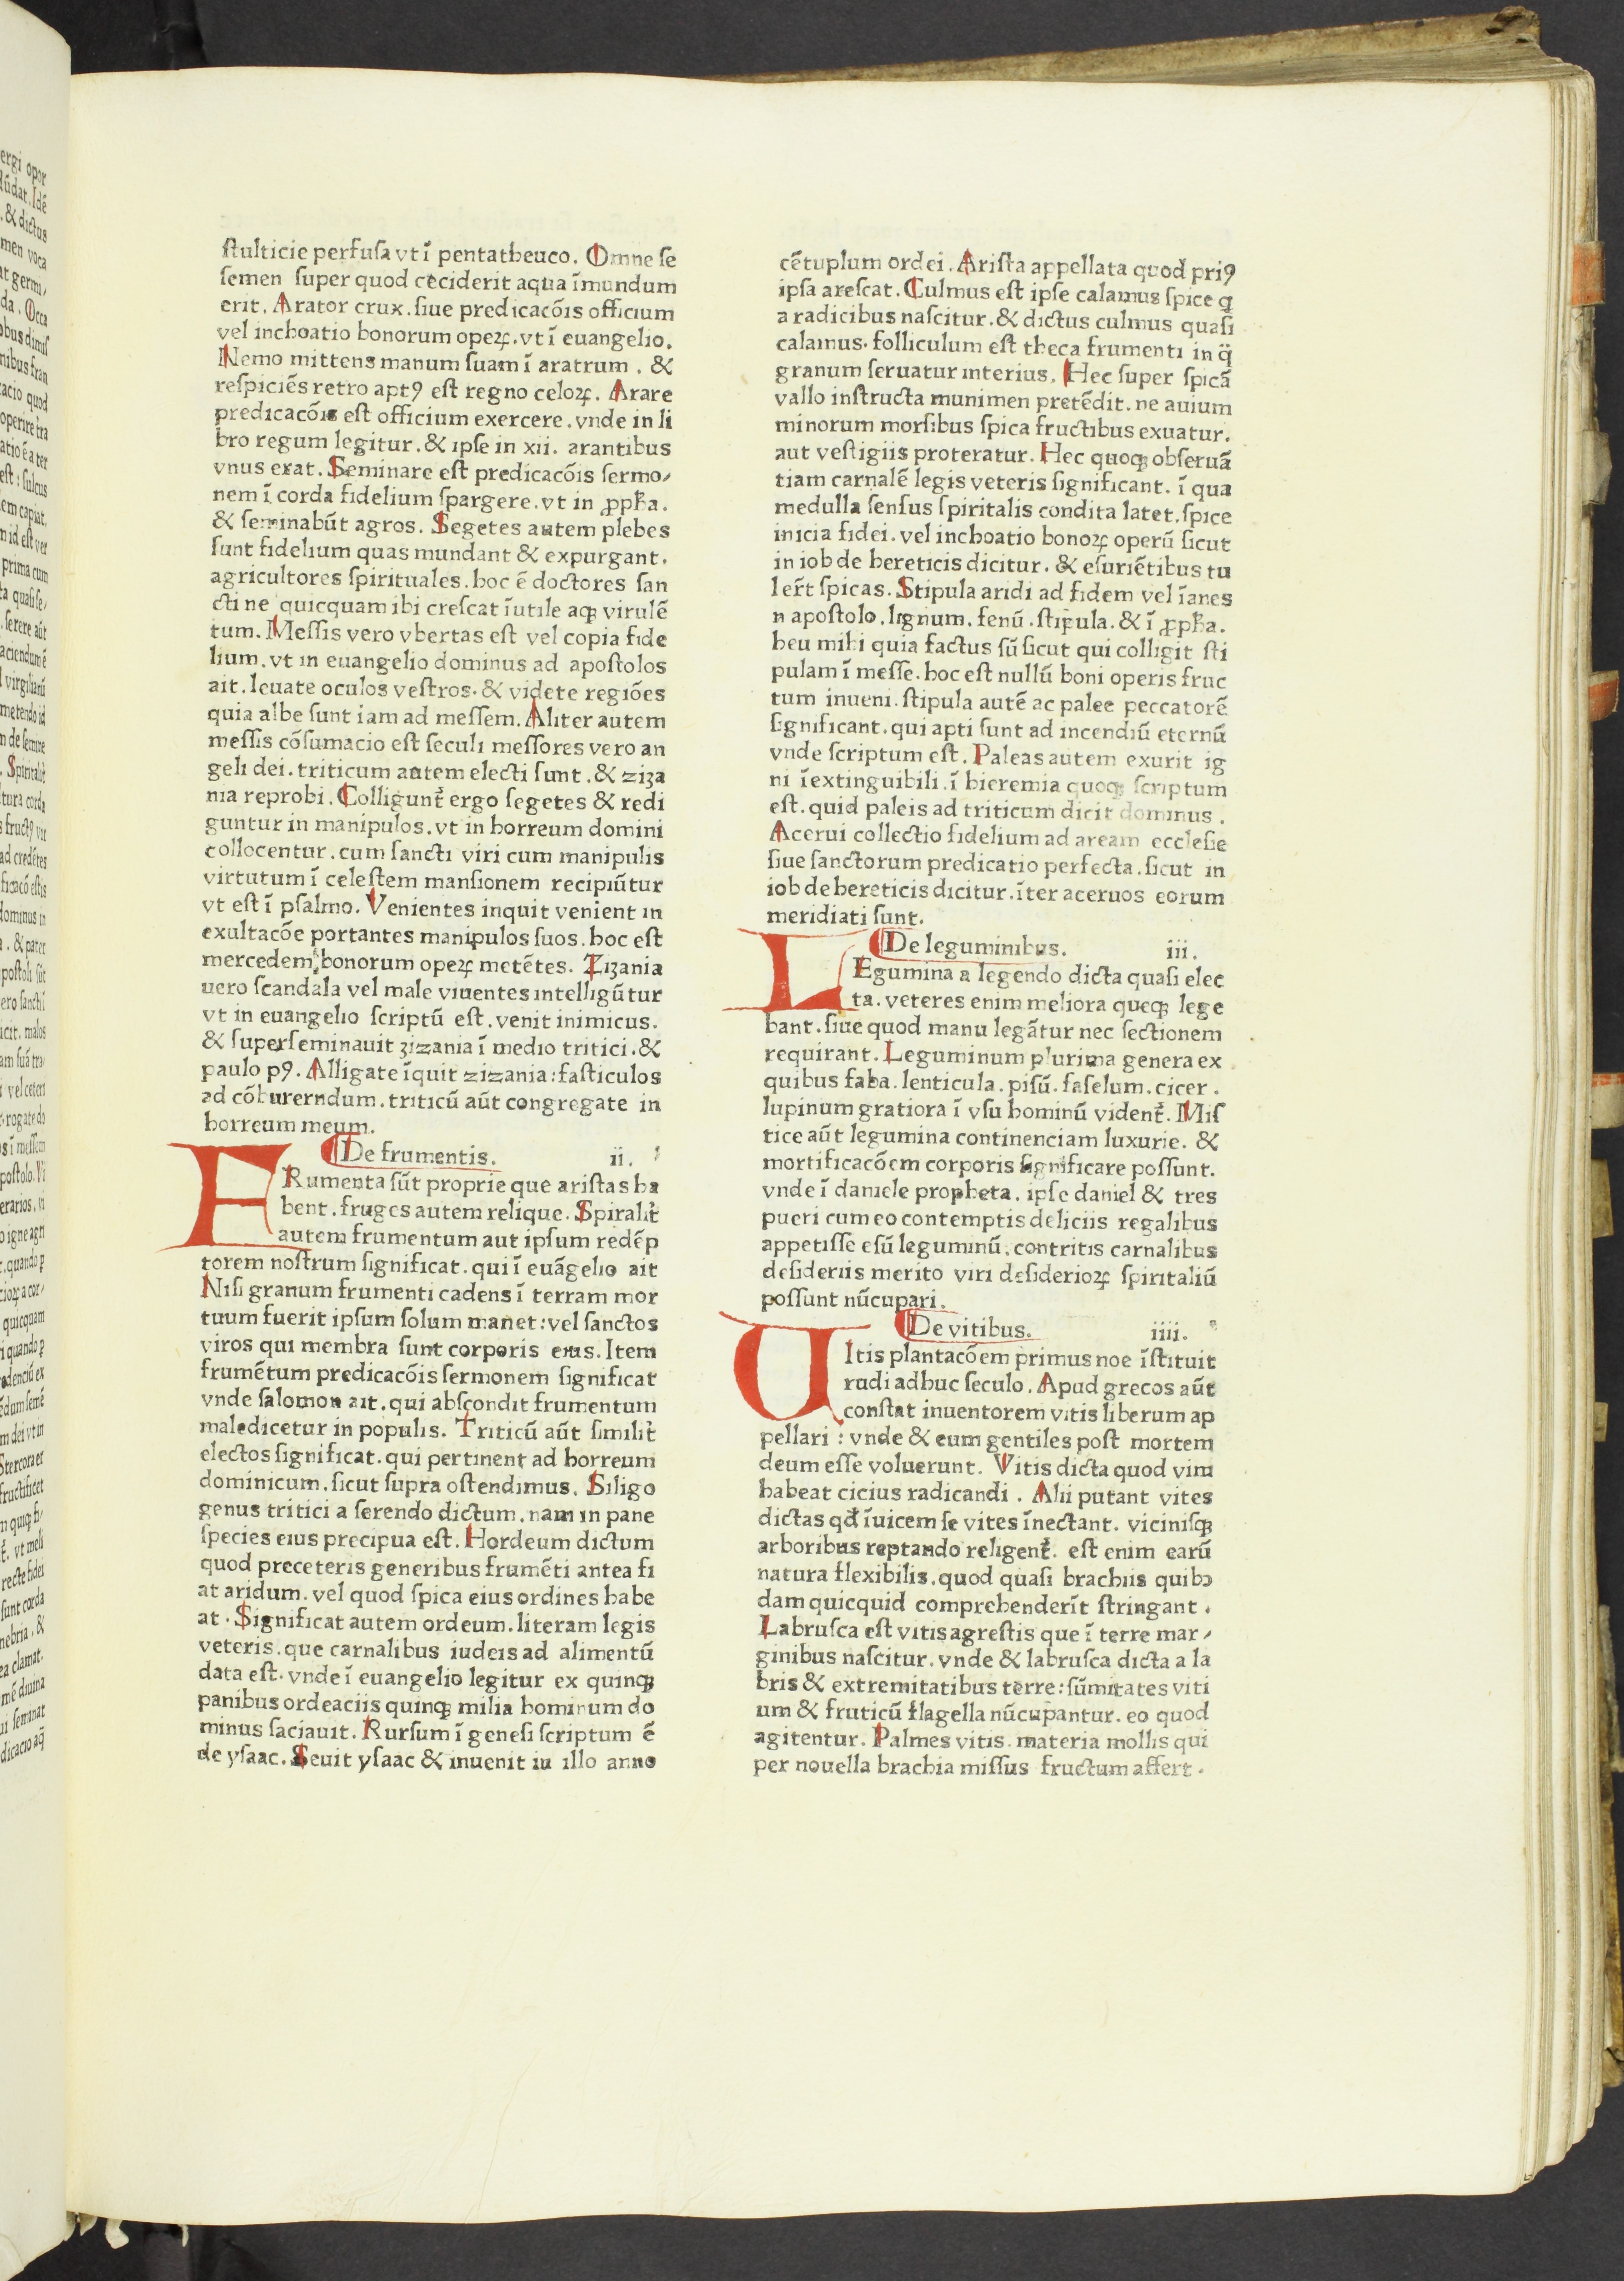 stulticie perfusa vt ī pentatheuco. Omne se
semen super quod ceciderit aqua īmundum
erit. Arator crux. siue predicacōis officium
vel inchoatio bonorum opeꝝ. vt ī euangelio.
Nemo mittens manum suam ī aratrum. &
respiciēs retro aptꝰ est regno celoꝝ. Arare
predicacōis est officium exercere. vnde in li
bro regum legitur. & ipse in xii. arantibus
vnus erat. Seminare est predicacōis sermo⸗
nem ī corda fidelium spargere. vt in ꝓpħa.
& seminabūt agros. Segetes autem plebes
sunt fidelium quas mundant & expurgant.
agricultores spirituales. hoc ē doctores san
cti ne quicquam ibi crescat īutile aqꝫ virulē
tum. Messis vero vbertas est vel copia fide
lium. vt in euangelio dominus ad apostolos
ait. leuate oculos vestros. & videte regiōes
quia albe sunt iam ad messem. Aliter autem
messis cōsumacio est seculi messores vero an
geli dei. triticum autem electi sunt. & ziza
nia reprobi. Colligunt̄ ergo segetes & redi
guntur in manipulos. vt in horreum domini
collocentur. cum sancti viri cum manipulis
virtutum ī celestem mansionem recipiūtur
vt est ī psalmo. Venientes inquit venient in
exultacōe portantes manipulos suos. hoc est
mercedem bonorum opeꝝ metētes. Zizania
uero scandala vel male viuentes intelligūtur
vt in euangelio scriptū est. venit inimicus.
& superseminauit zizania ī medio tritici. &
paulo pꝰ. Alligate īquit zizania: fasticulos
ad cōburerndum. triticū aūt congregate in
horreum meum.
De frumentis. ii.
FRumenta sūt proprie que aristas ha
bent. fruges autem relique. Spiralit̄
autem frumentum aut ipsum redēp
torem nostrum significat. qui ī euāgelio ait
Nisi granum frumenti cadens ī terram mor
tuum fuerit ipsum solum manet: vel sanctos
viros qui membra sunt corporis eius. Item
frumētum predicacōis sermonem significat
vnde salomon ait. qui abscondit frumentum
maledicetur in populis. Triticū aūt similit̄
electos significat. qui pertinent ad horreum
dominicum. sicut supra ostendimus. Siligo
genus tritici a serendo dictum. nam in pane
species eius precipua est. Hordeum dictum
quod preceteris generibus frumēti antea fi
at aridum. vel quod spica eius ordines habe
at. Significat autem ordeum. literam legis
veteris. que carnalibus iudeis ad alimentū
data est. vnde ī euangelio legitur ex quinqꝫ
panibus ordeaciis quinqꝫ milia hominum do
minus saciauit. Rursum ī genesi scriptum ē
de ysaac. Seuit ysaac & inuenit in illo anno
cētuplum ordei. Arista appellata quod priꝰ
ipsa arescat. Culmus est ipse calamus spice q̄
a radicibus nascitur. & dictus culmus quasi
calamus. folliculum est theca frumenti in q̄
granum seruatur interius. Hec super spicā
vallo instructa munimen pretēdit. ne auium
minorum morsibus spica fructibus exuatur.
aut vestigiis proteratur. Hec quoqꝫ obseruā
tiam carnalē legis veteris significant. ī qua
medulla sensus spiritalis condita latet. spice
inicia fidei. vel inchoatio bonoꝝ operū sicut
in iob de hereticis dicitur. & esuriētibus tu
ler̄t spicas. Stipula aridi ad fidem vel īanes
n apostolo. lignum. fenū. stipula. & ī ꝓpħa.
heu mihi quia factus sū sicut qui colligit sti
pulam ī messe. hoc est nullū boni operis fruc
tum inueni. stipula autē ac palee peccatorē
significant. qui apti sunt ad incendiū eternū
vnde scriptum est. Paleas autem exurit ig
ni īextinguibili. ī hieremia quoqꝫ scriptum
est. quid paleis ad triticum dicit dominus.
Acerui collectio fidelium ad aream ecclesie
siue sanctorum predicatio perfecta. sicut in
iob de hereticis dicitur. īter aceruos eorum
meridiati sunt.
De leguminibus. iii.
LEgumina a legendo dicta quasi elec
ta. veteres enim meliora queqꝫ lege
bant. siue quod manu legātur nec sectionem
requirant. Leguminum plurima genera ex
quibus faba. lenticula. pisū. faselum. cicer.
lupinum gratiora ī vsu hominū vident̄. Mis
tice aūt legumina continenciam luxurie. &
mortificacōem corporis significare possunt.
vnde ī daniele propheta. ipse daniel & tres
pueri cum eo contemptis deliciis regalibus
appetisse esū leguminū. contritis carnalibus
desideriis merito viri desiderioꝝ spiritaliū
possunt nūcupari.
De vitibus. iiii.
UItis plantacōem primus noe īstituit
rudi adhuc seculo. Apud grecos aūt
constat inuentorem vitis liberum ap
pellari: vnde & eum gentiles post mortem
deum esse voluerunt. Vitis dicta quod vim
habeat cicius radicandi. Alii putant vites
dictas qđ īuicem se vites īnectant. vicinisqꝫ
arboribus reptando religent̄. est enim earū
natura flexibilis. quod quasi brachiis quibꝰ
dam quicquid comprehenderīt stringant.
Labrusca est vitis agrestis que ī terre mar⸗
ginibus nascitur. vnde & labrusca dicta a la
bris & extremitatibus terre: sūmitates viti
um & fruticū flagella nūcupantur. eo quod
agitentur. Palmes vitis. materia mollis qui
per nouella brachia missus fructum affert.